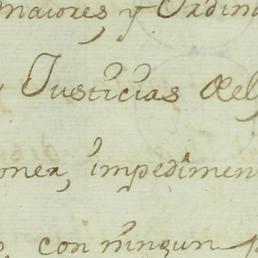 maiores, y Ordina
y Justicias del
oner, impedimen
con ningun